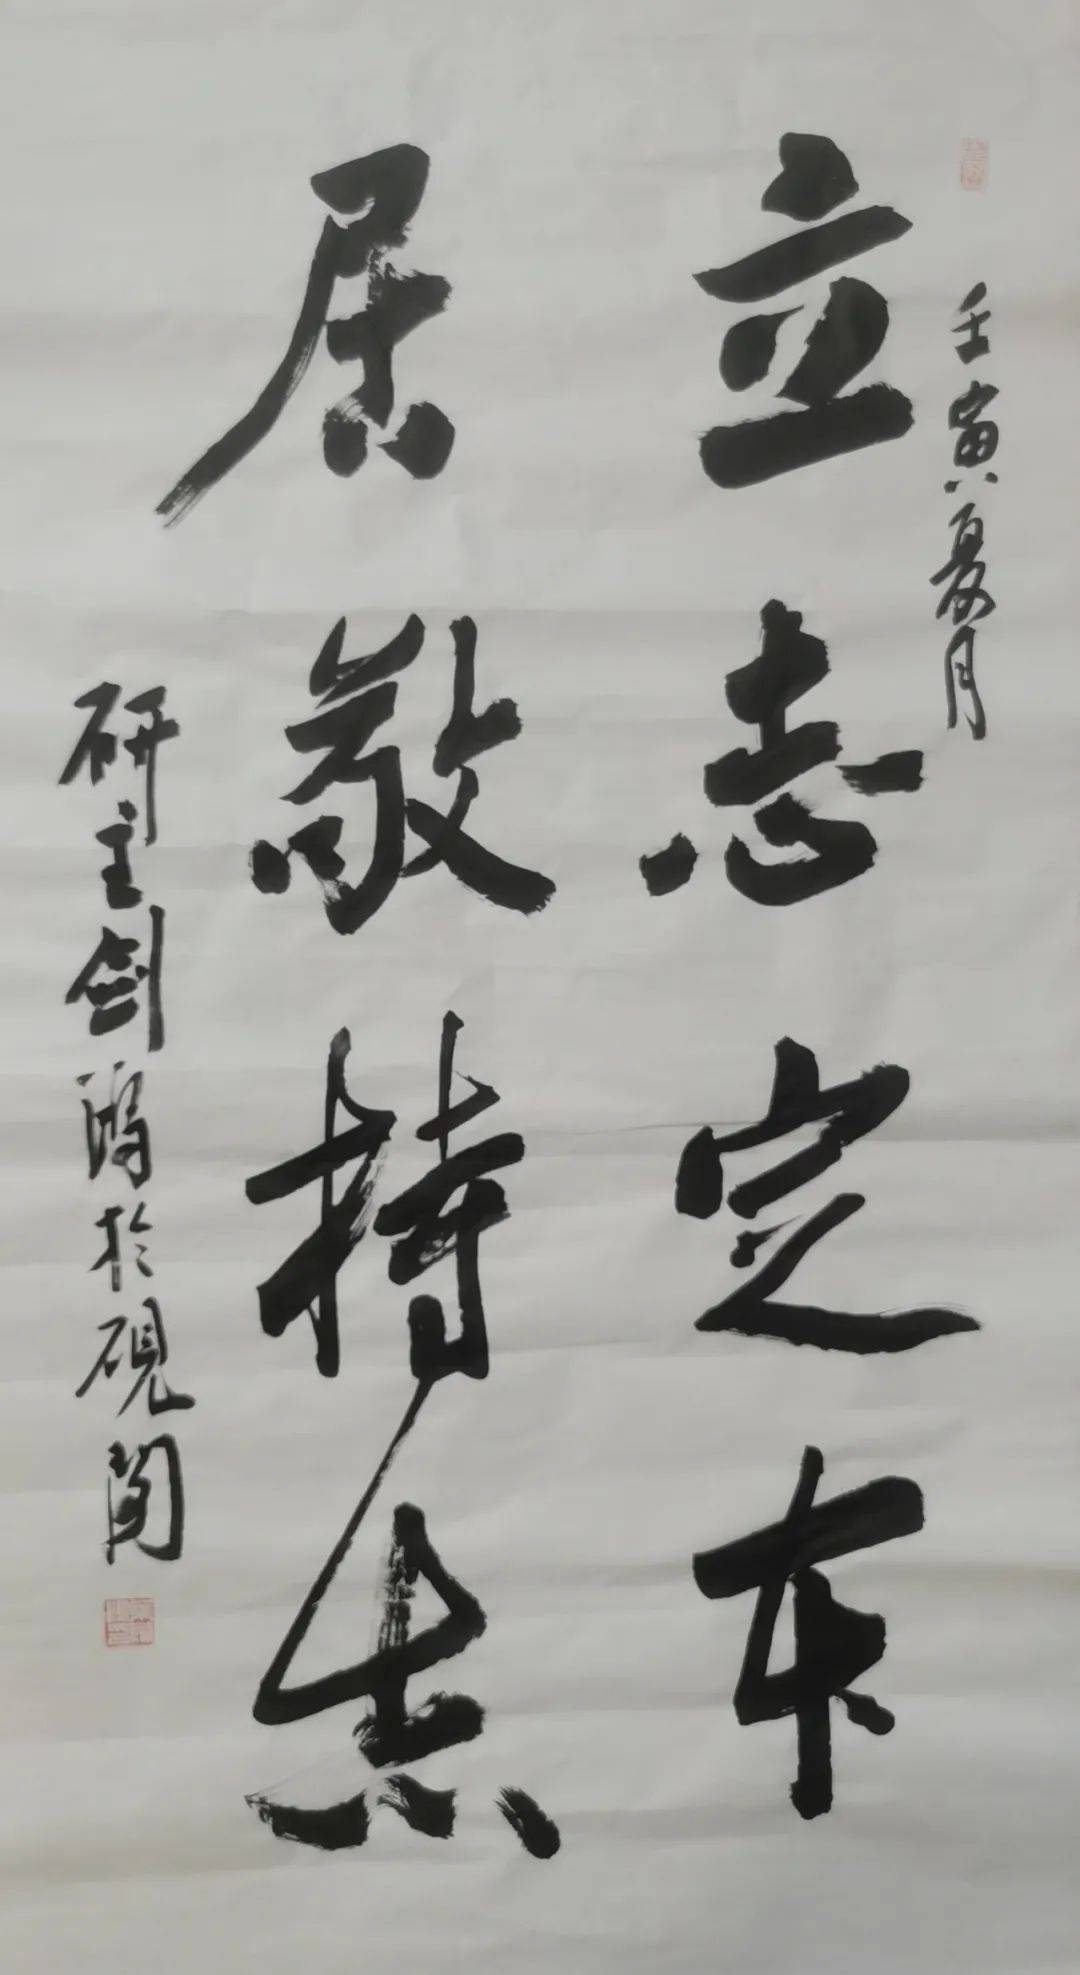 壬寅夏月
立志定本
居敬持志
研主剑鸿於砚阁